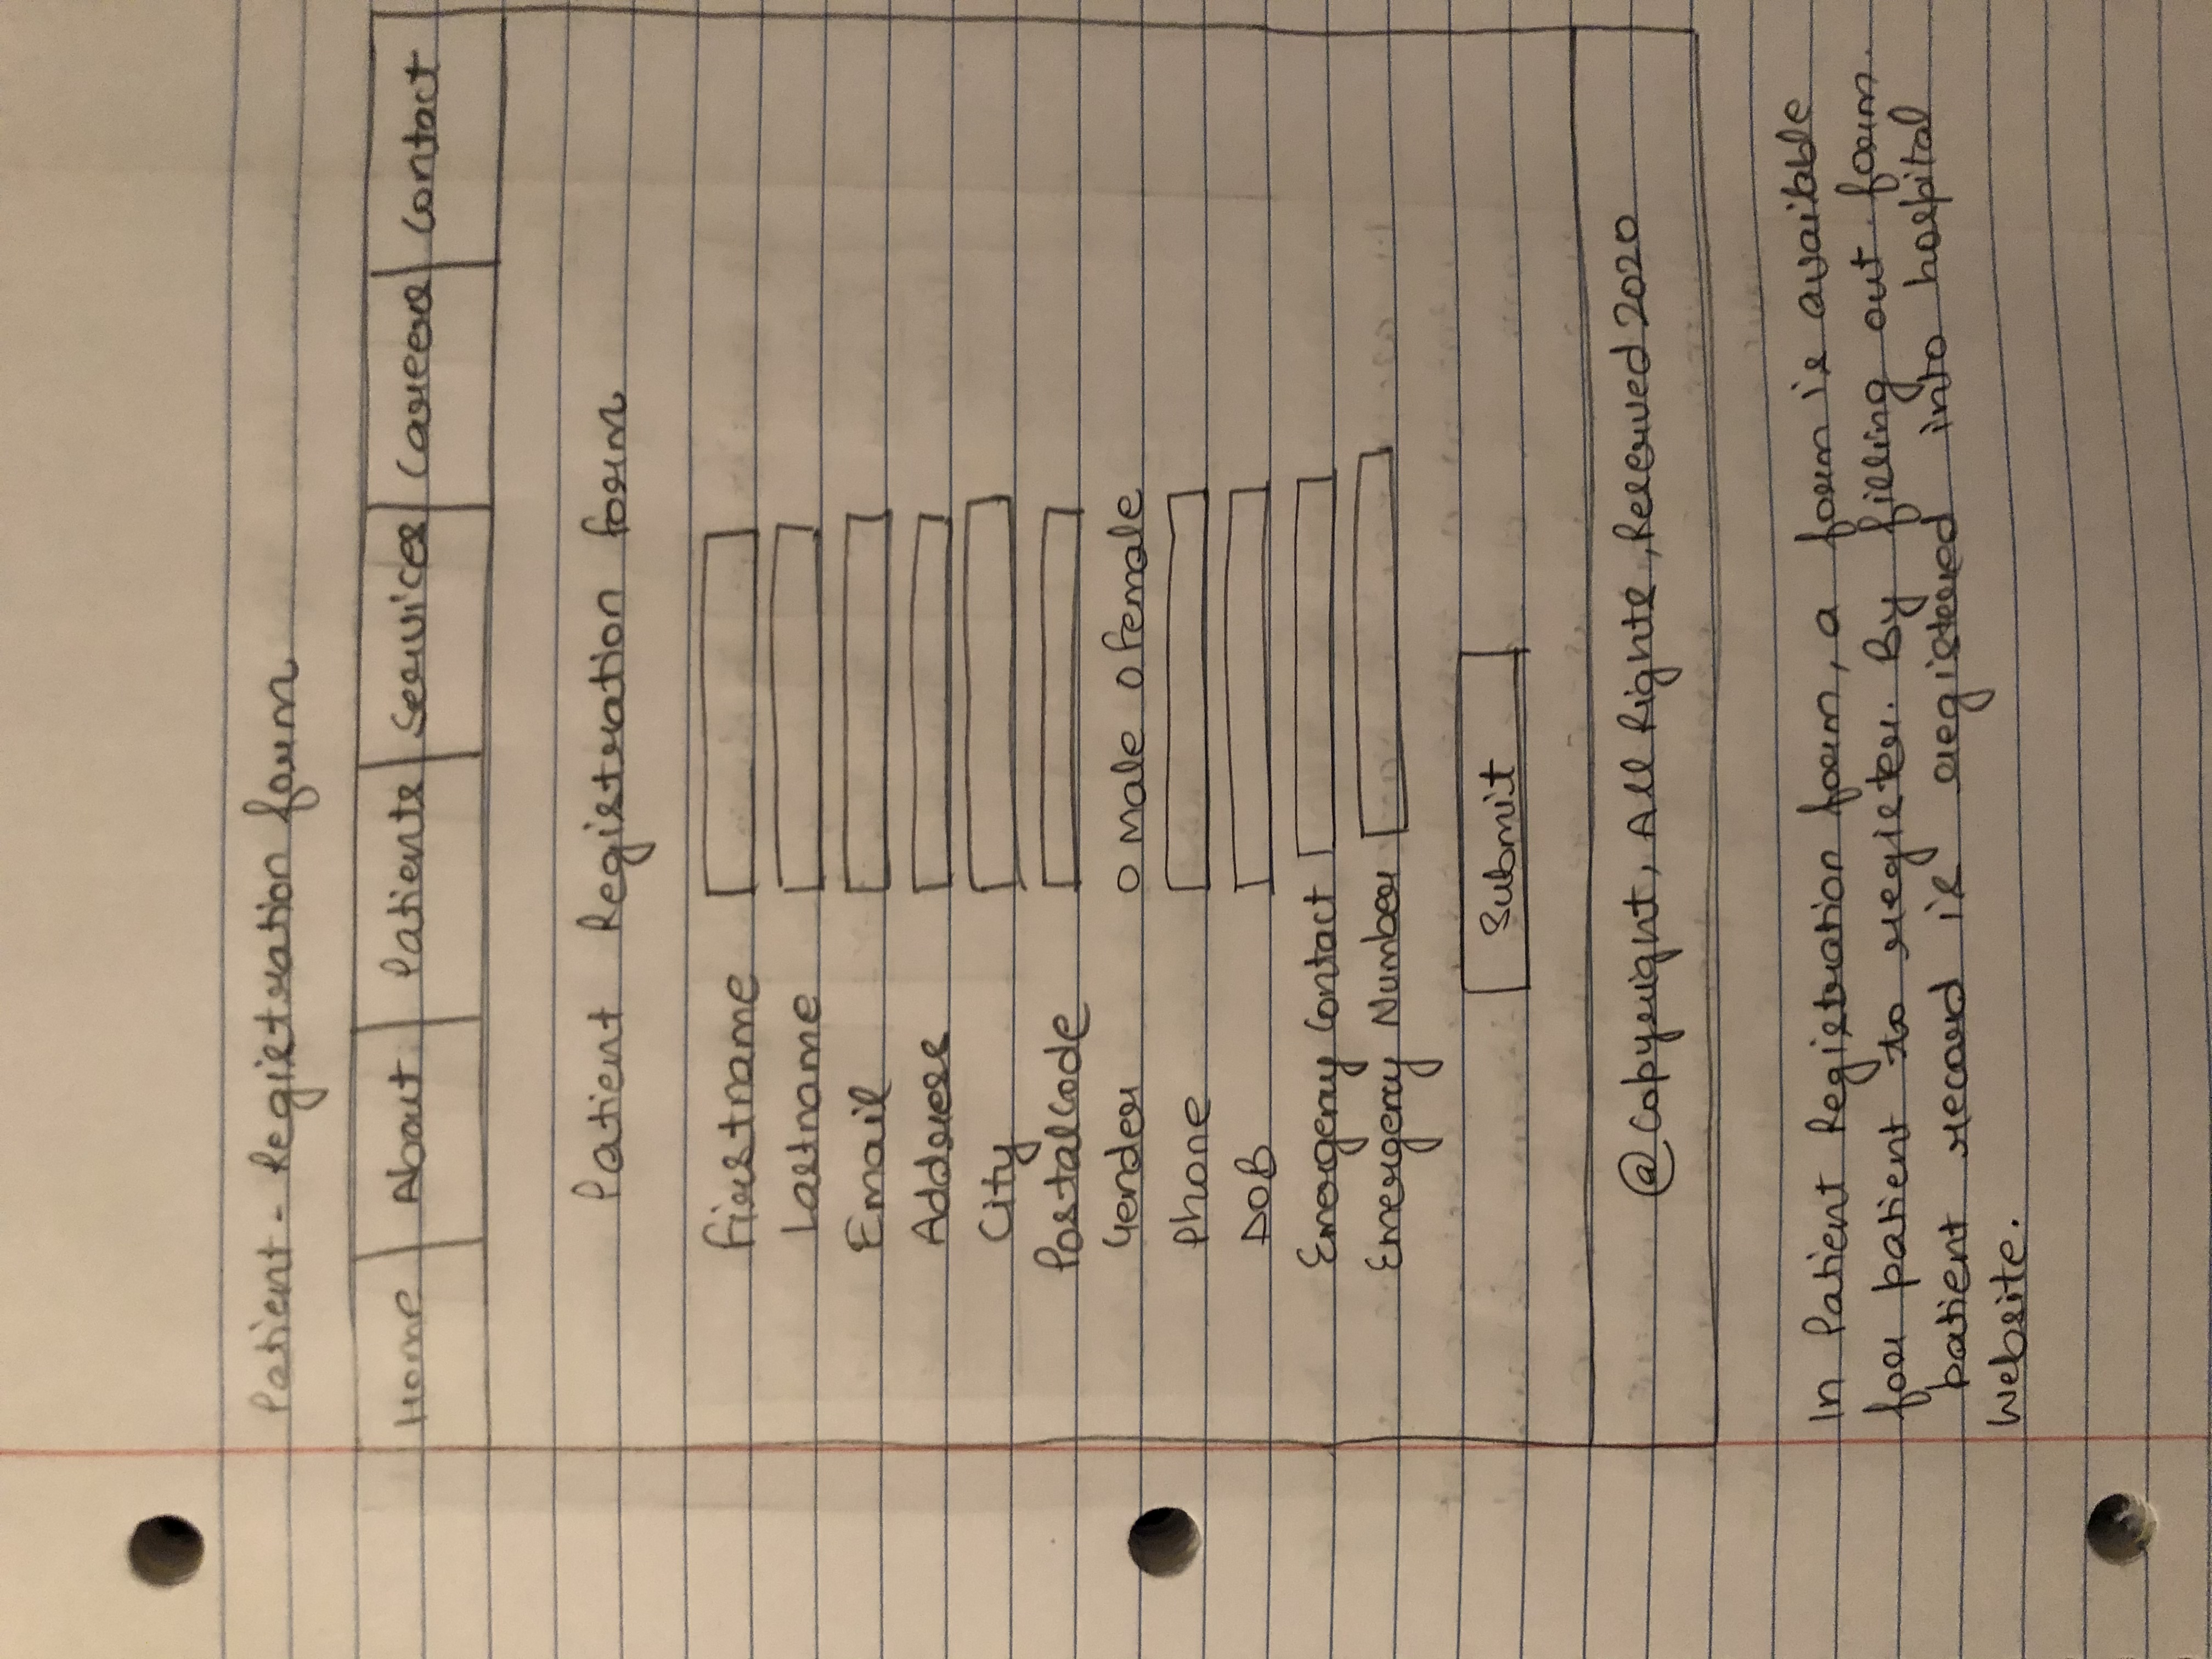 Patient - Registration form
Home About Patients Services Careers Contact
Patient Registration form
Firstname
Lastname
Email
Address
City
Postalcode
Gender O Male O Female
Phone
DOB
Emergency Contact
Emergency Number
Submit
@ Copyright, All Rights, Reserved 2020
In Patient Registration form, a form is available
for patient to register. By filling out form
patient record is registered into hospital
website.